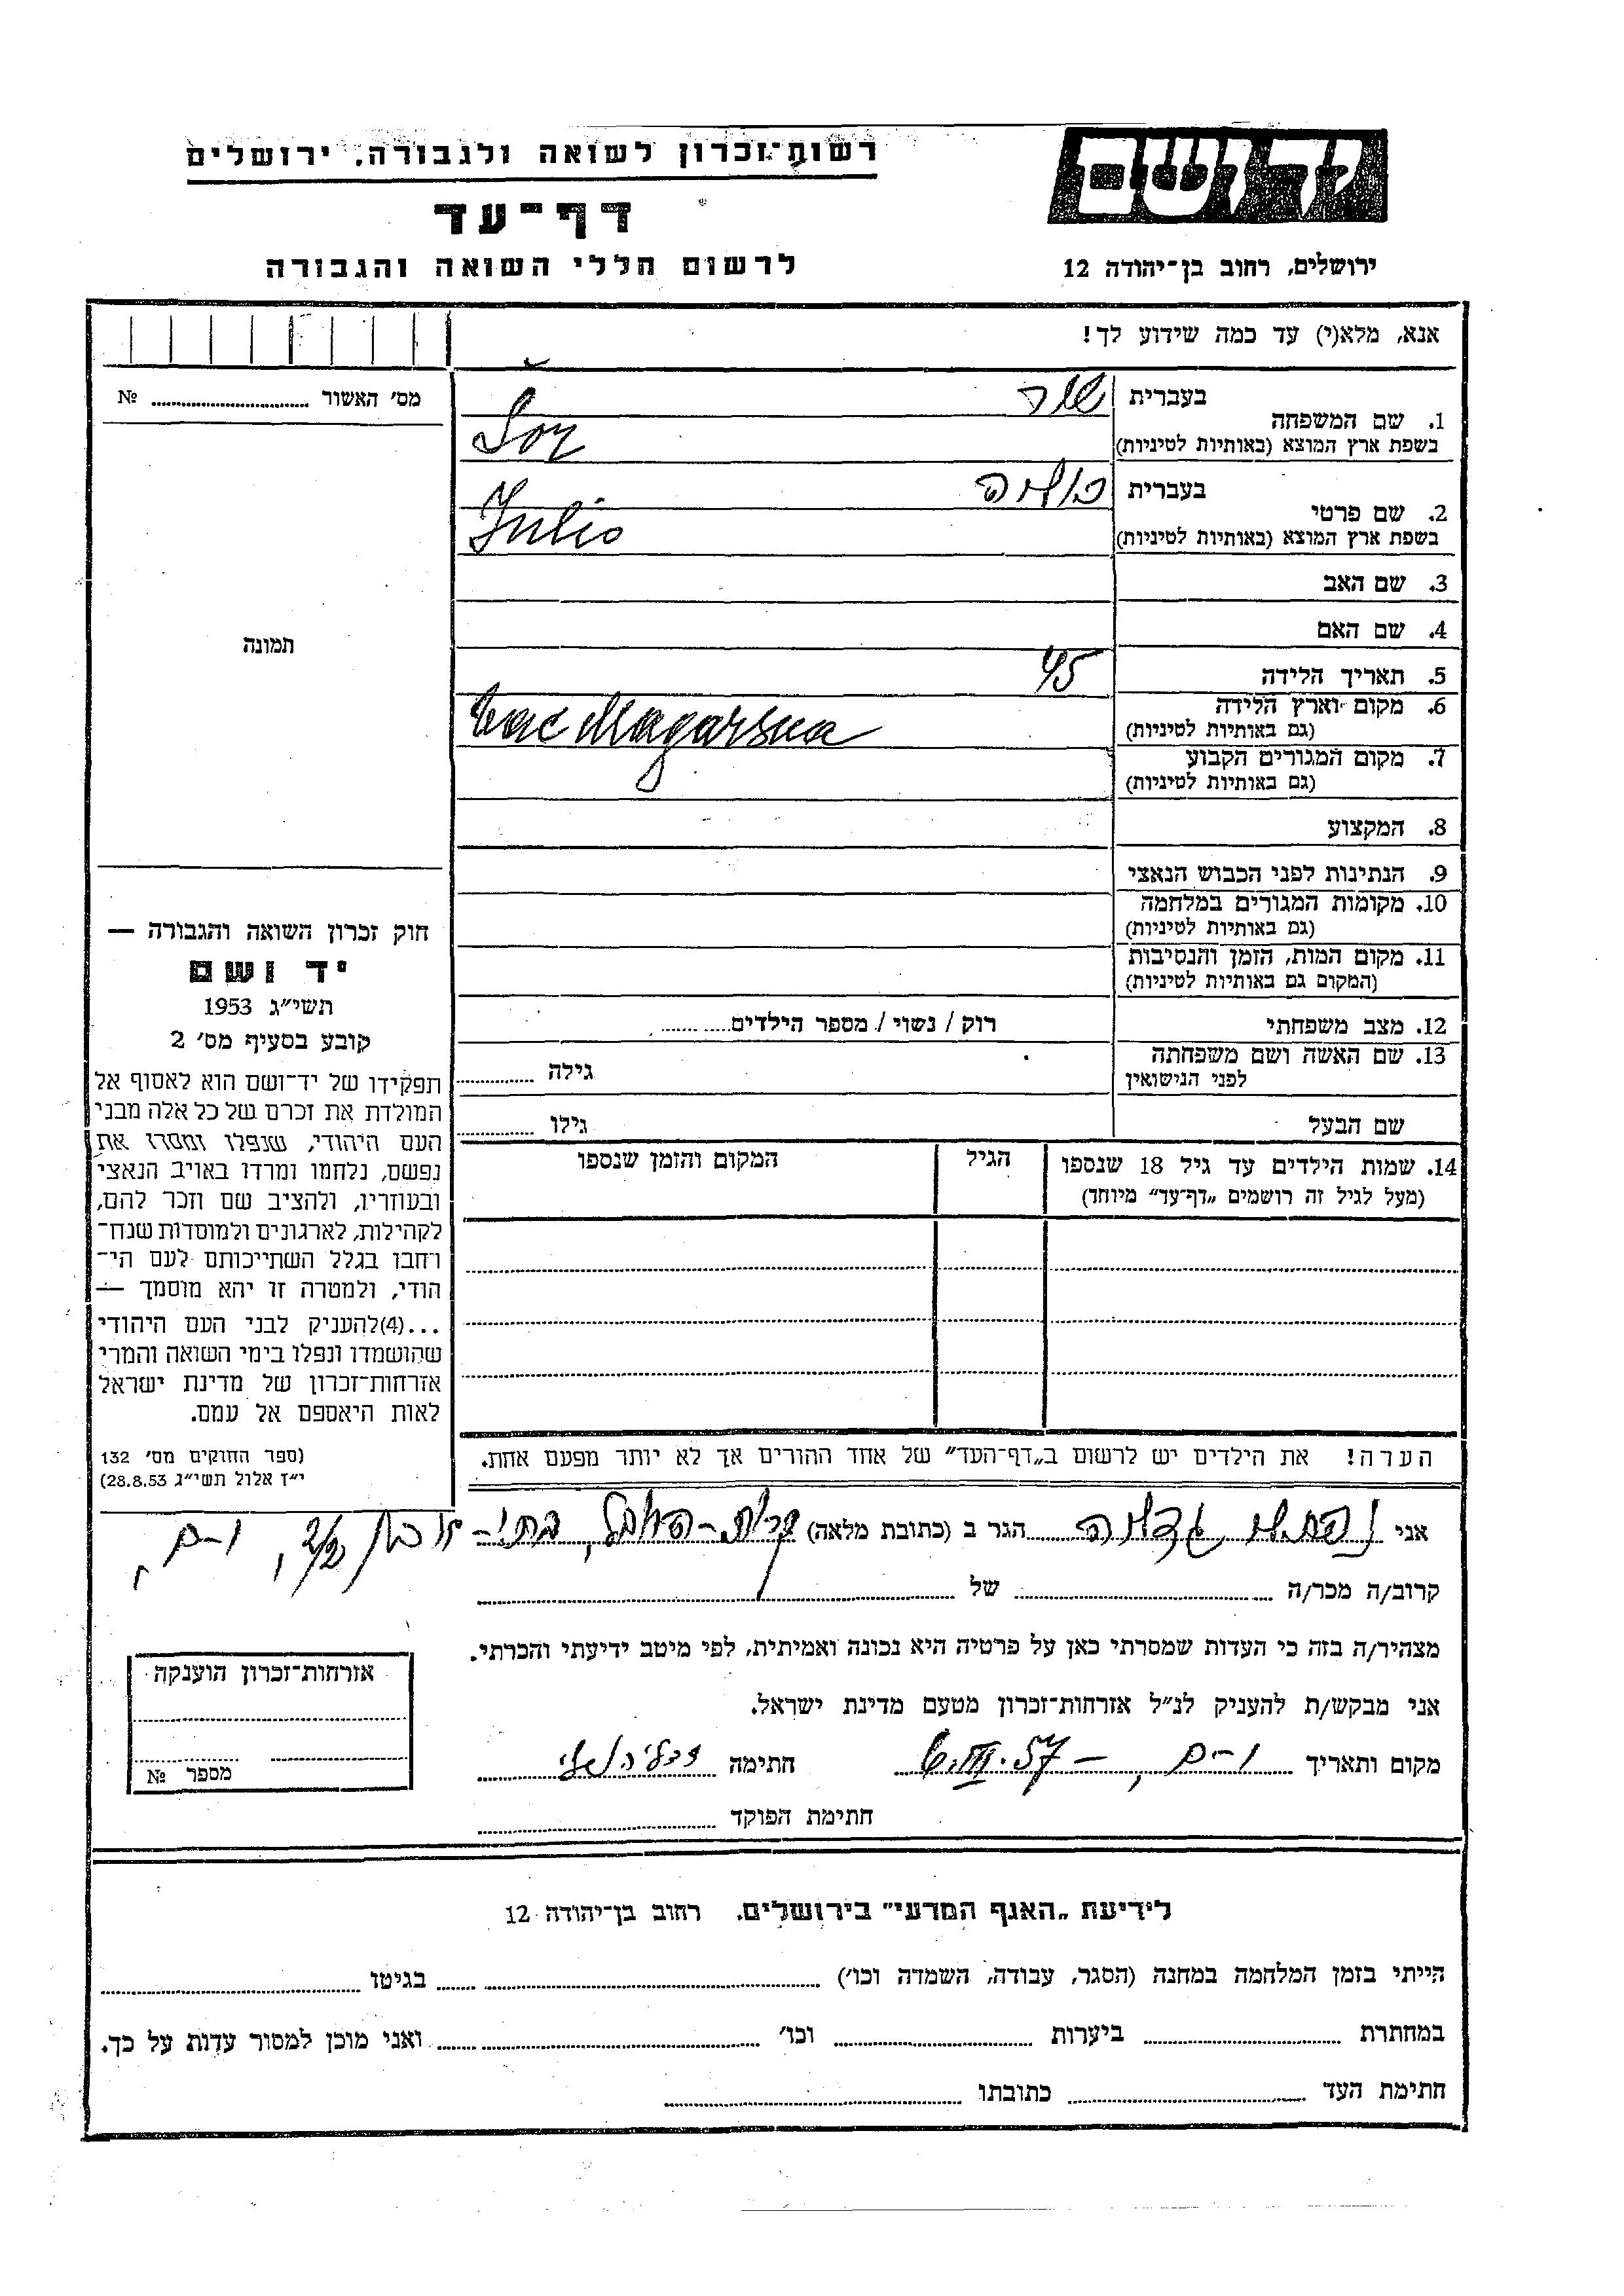 רשות־זכרון לשואה ולגבורה, ירושלים
יד ושם
דף־עד
לרשום חללי השואה והגבורה
ירושלים, רחוב בן־יהודה 12
אנא, מלא(י) עד כמה שידוע לך!
מס' האשור № 
תמונה
1. שם המשפחה
בעברית שור
בשפת ארץ המוצא (באותיות לטיניות) Šor
2. שם פרטי
בעברית
בשפת ארץ המוצא (באותיות לטיניות) Julio
3. שם האב
4. שם האם
5. תאריך הלידה 45
6. מקום וארץ הלידה
(גם באותיות לטיניות)
7. מקום המגורים הקבוע
(גם באותיות לטיניות)
8. המקצוע
9. הנתינות לפני הכבוש הנאצי
10. מקומות המגורים במלחמה
(גם באותיות לטיניות)
11. מקום המות, הזמן והנסיבות
(המקום גם באותיות לטיניות)
12. מצב משפחתי רוק / נשוי / מספר הילדים
13. שם האשה ושם משפחתה
לפני הנישואין גילה
שם הבעל גילו
14. שמות הילדים עד גיל 18 שנספו הגיל המקום והזמן שנספו
(מעל לגיל זה רושמים „דף־עד" מיוחד)
הערה! את הילדים יש לרשום ב„דף־העד" של אחד ההורים אך לא יותר מפעם אחת.
חוק זכרון השואה והגבורה —
יד ושם
תשי"ג 1953
קובע בסעיף מס' 2
תפקידו של יד־ושם הוא לאסוף אל
המולדת את זכרם של כל אלה מבני
העם היהודי, שנפלו ומסרו את
נפשם, נלחמו ומרדו באויב הנאצי
ובעוזריו, ולהציב שם וזכר להם,
לקהילות, לארגונים ולמוסדות שנח־
רחבו בגלל השתייכותם לעם הי־
הודי, ולמטרה זו יהא מוסמך —
...(4)להעניק לבני העם היהודי
שהושמדו ונפלו בימי השואה והמרי
אזרחות־זכרון של מדינת ישראל
לאות היאספם אל עמם.
(ספר החוקים מס' 132
י"ז אלול תשי"ג 28.8.53)
אני הגר ב (כתובת מלאה)
קרוב/ה מכר/ה של
מצהיר/ה בזה כי העדות שמסרתי כאן על פרטיה היא נכונה ואמיתית, לפי מיטב ידיעתי והכרתי.
אני מבקש/ת להעניק לנ"ל אזרחות־זכרון מטעם מדינת ישראל.
מקום ותאריך י-ם, – 6.III.57 חתימה
חתימת הפוקד
אזרחות־זכרון הוענקה
מספר №
לידיעת „האגף המדעי" בירושלים, רחוב בן־יהודה 12
הייתי בזמן המלחמה במחנה (הסגר, עבודה, השמדה וכו') בגיטו
במחתרת ביערות וכו' ואני מוכן למסור עדות על כך.
חתימת העד כתובתו